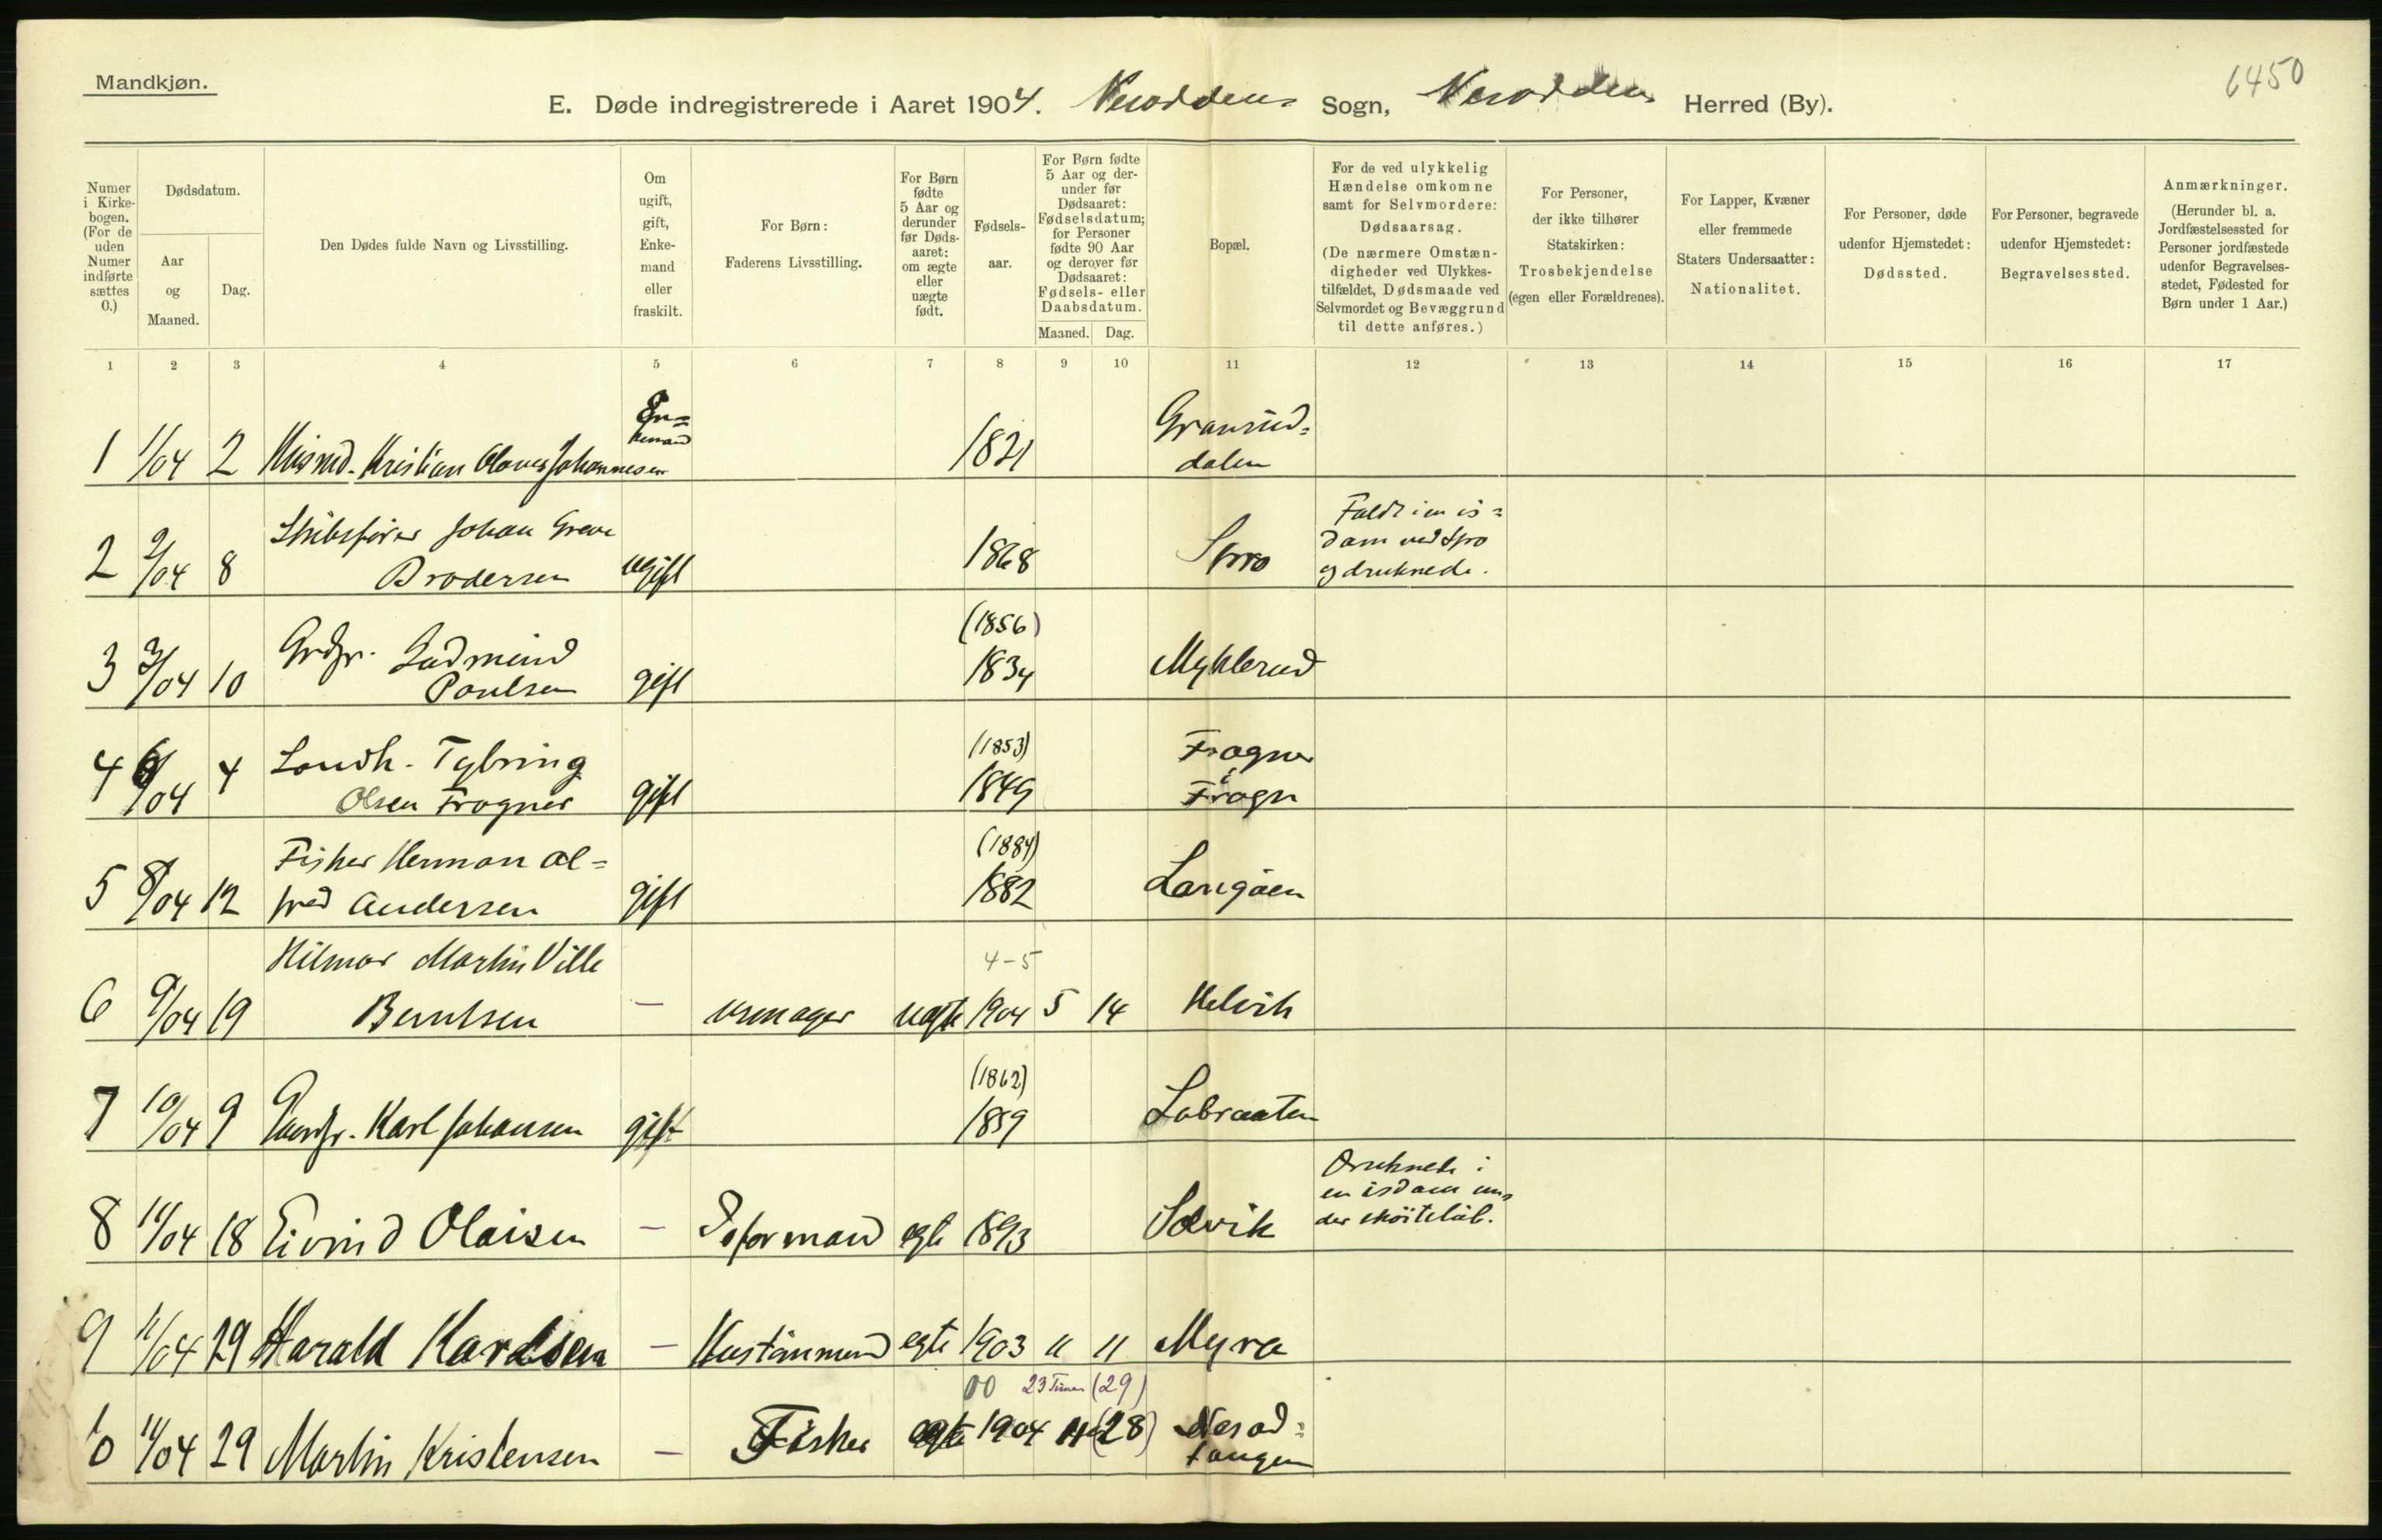 Mandkjøn.
6450
E. Døde indregistrerede i Aaret 1904. Nesoddens Sogn, Nesoddens Herred (By).
Numer i Kirkebogen. (For de uden Numer indførte sættes 0.)
Dødsdatum.
Aar og Maaned.
Dag.
Den Dødes fulde Navn og Livsstilling.
Om ugift, gift, Enkemand eller fraskilt.
For Børn: Faderens Livsstilling.
For Børn fødte 5 Aar og derunder før Dødsaaret: om ægte eller uægte født.
Fødselsaar.
For Børn fødte 5 Aar og derunder før Dødsaaret: Fødselsdatum; for Personer fødte 90 Aar og derover før Dødsaaret: Fødsels- eller Daabsdatum.
Maaned. Dag.
Bopæl.
For de ved ulykkelig Hændelse omkomne samt for Selvmordere: Dødsaarsag. (De nærmere Omstændigheder ved Ulykkestilfældet, Dødsmaade ved Selvmordet og Bevæggrund til dette anføres.)
For Personer, der ikke tilhører Statskirken: Trosbekjendelse (egen eller Forældrenes).
For Lapper, Kvæner eller fremmede Staters Undersaatter: Nationalitet.
For Personer, døde udenfor Hjemstedet: Dødssted.
For Personer, begravede udenfor Hjemstedet: Begravelsessted.
Anmærkninger. (Herunder bl. a. Jordfæstelsessted for Personer jordfæstede udenfor Begravelsesstedet, Fødested for Børn under 1 Aar.)
1 2 3 4 5 6 7 8 9 10 11 12 13 14 15 16 17
En=
kemand
Granrud=
1 1/04 2 Husmd. Kristian Olaves Johannesen 1821 dalen
Faldt i en is=
Skibsfører Johan Greve dam ved Spro
2 2/04 8 Brodersen ugift 1868 Spro og druknede.
(1856)
3 3/04 10 Grdbr. Gudmund 1834 Myklerud
Paulsen gift
(1853) Fragner
4 6/04 4 Landh. Tybring i
Olsen Frogner gift 1849 Frogn
Fisker Herman Al= (1884)
5 8/04 12 fred Andersen gift 1882 Langøen
Hilmar Martin Ville 4-5
6 9/04 19 Berntsen — urmager uegte 1904 5 14 Helvik
(1862)
7 10/04 9 Gaardbr. Karl Johansen gift 1859 Labraaten
Druknede i
en isdam un=
8 11/04 18 Eivind Olaisen — Isformand egte 1893 Solvik der skøiteløb.
9 11/04 29 Harald Karlsen — Hustømmerm egte 1903 11 11 Myra
00 23 Timer (29)
10 11/04 29 Martin Kristensen — Fisker egte 1904 11 (28) Nesod=
tangen